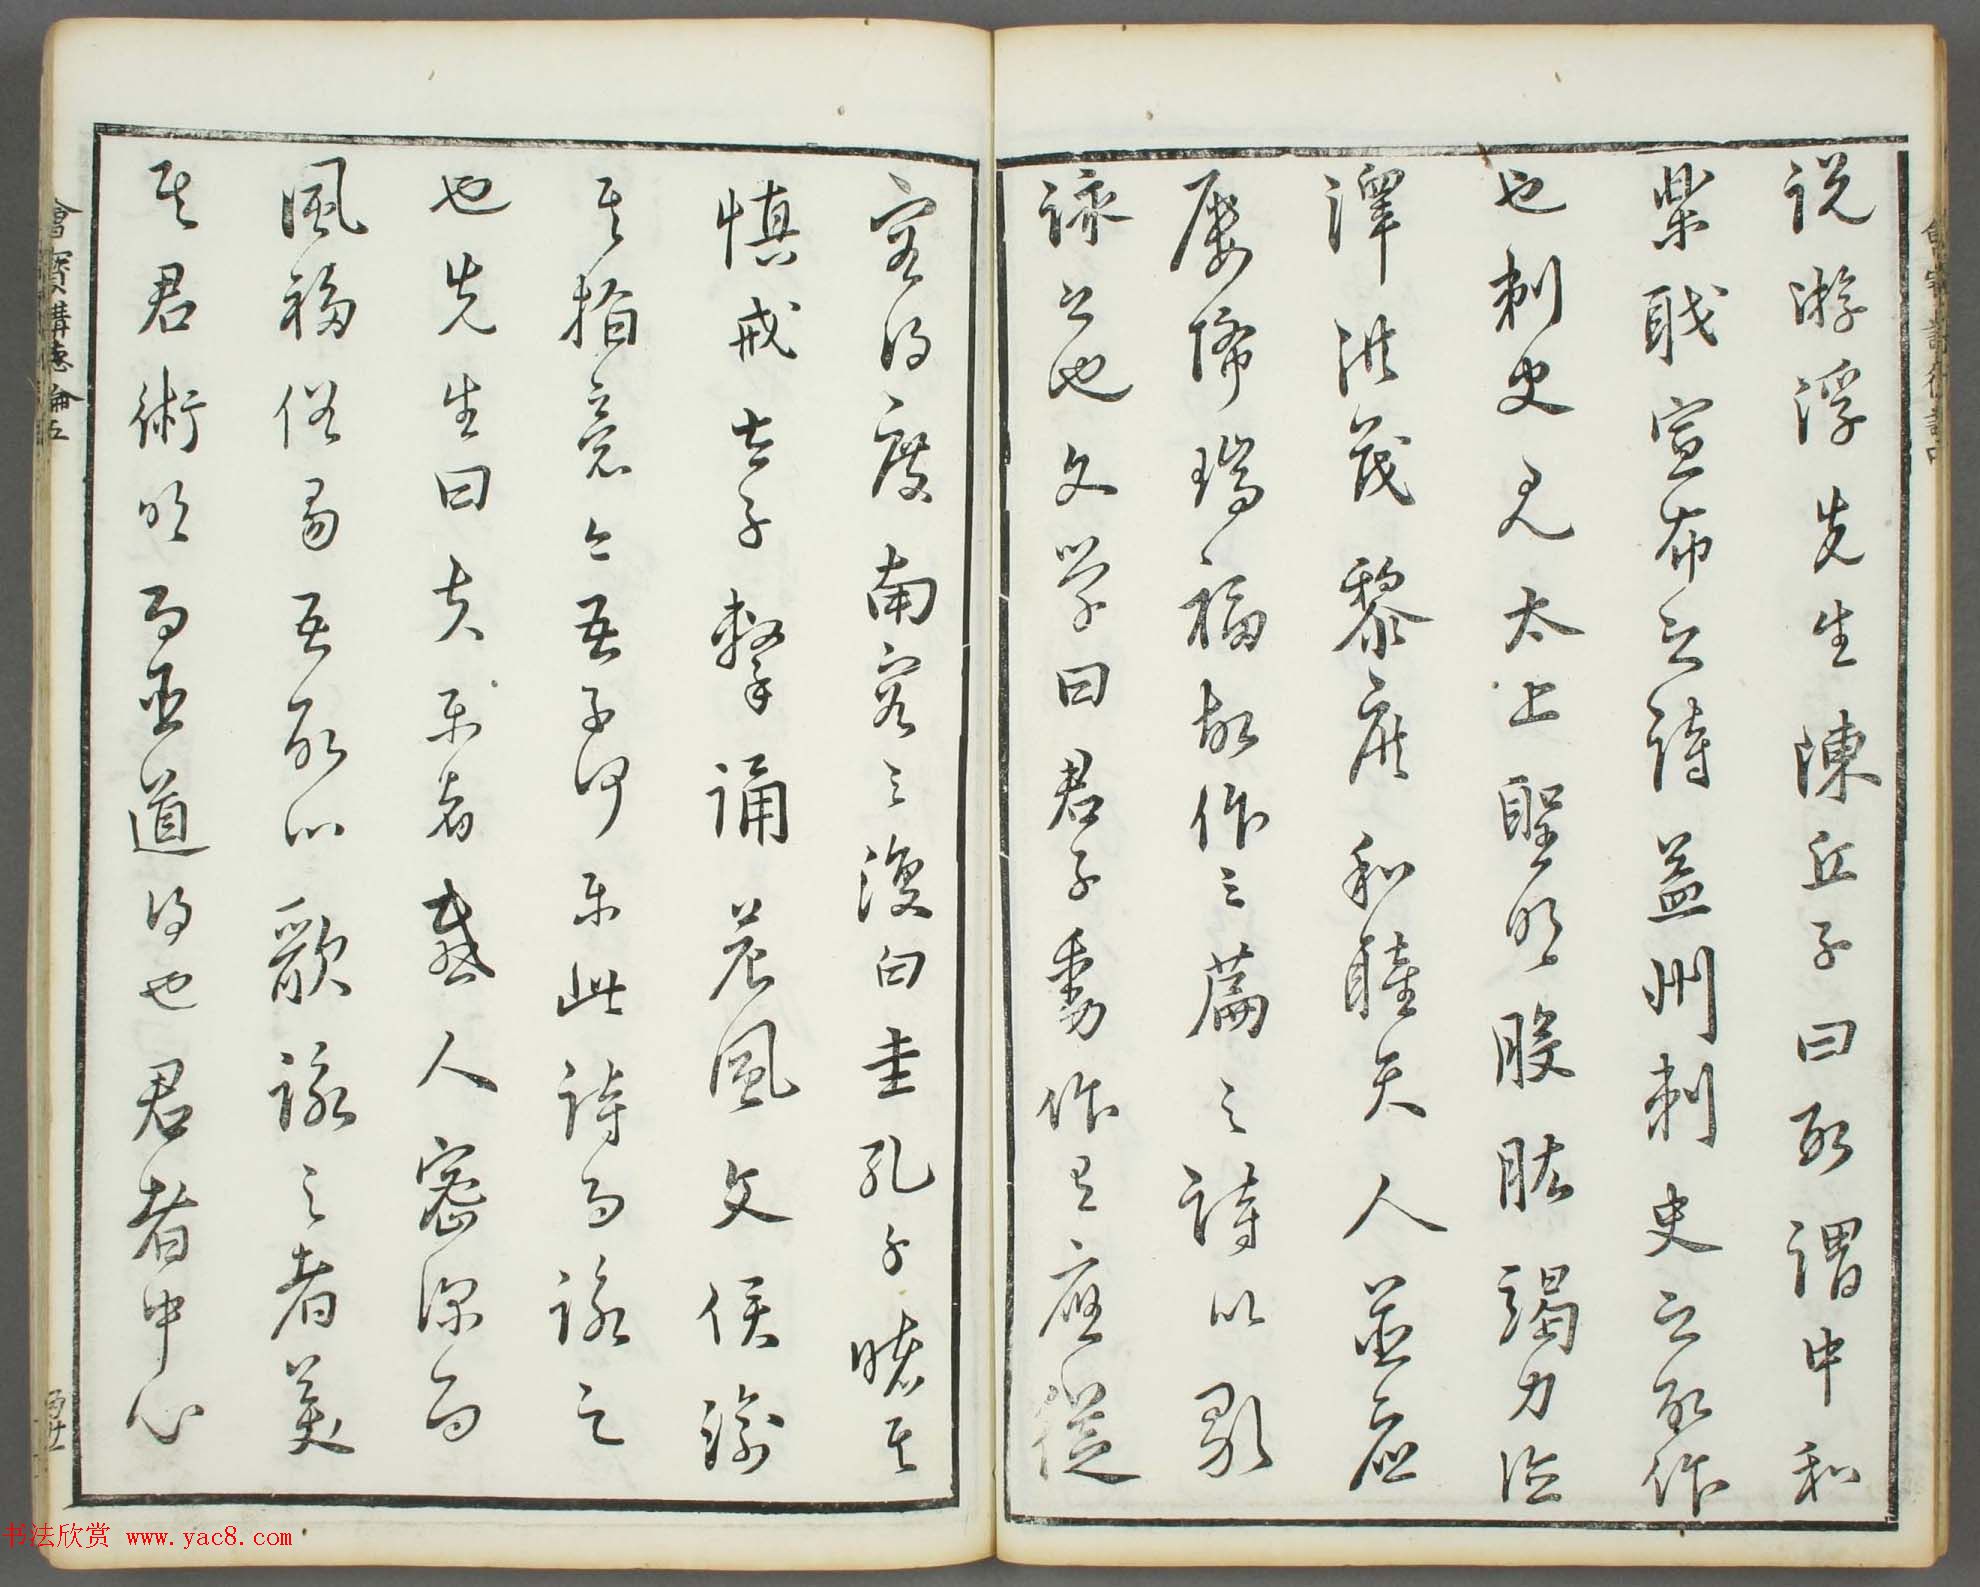 说游浮先生陳丘子曰所謂中和
樂職宣布之詩益州刺史之所作
也刺史見太上聖明股肱竭力德
澤洪茂黎庶和睦天人並應
屢降瑞福故作三篇之詩以歌
詠之也文学曰君子動作有應從
容得度南容三復白圭孔子睹其
慎戒太子擊誦晨風文侯諭
其指意今吾子何樂此詩而詠之
也先生曰夫樂者感人密深而
風移俗易吾所以歌詠之者美
其君術明而臣道得也君者中心
講德論五
书法欣赏 www.yac8.com